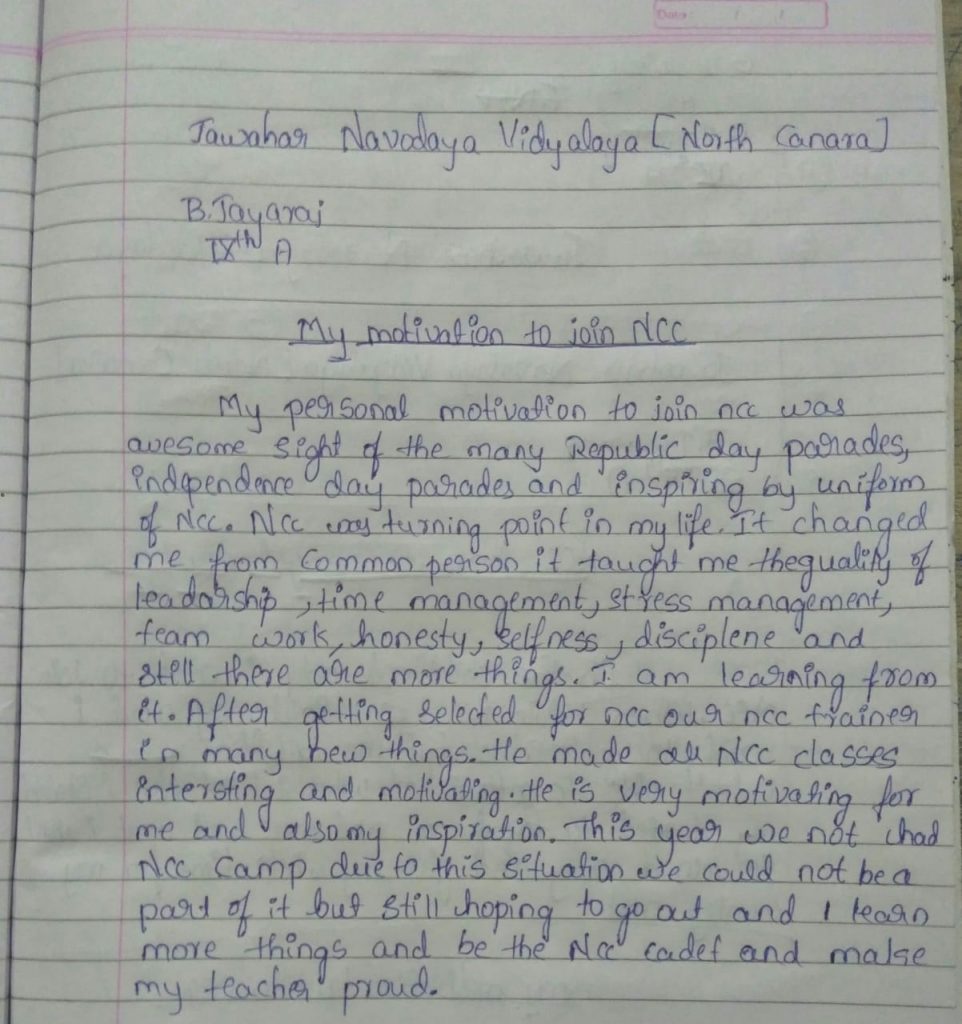 Date:
Jawahar Navodaya Vidyalaya [North Canara]
B. Jayaraj
IXth A
My motivation to join NCC
My personal motivation to join ncc was
avesome sight of the many Republic day parades,
independence day parades and inspiring by uniform
of NCC. NCC was turning point in my life. It changed
me from common person it taught me the quality of
leadarship, time management, stress management,
team work, honesty, selfness, disciplene and
still there are more things. I am learning from
it. After getting selected for ncc our ncc trainer
in many new things. He made all NCC classes
intersting and motivating. He is very motivating for
me and also my inspiration. This year we not had
NCC camp due to this situation we could not be a
part of it but still hoping to go out and I learn
more things and be the NCC cadet and make
my teacher proud.